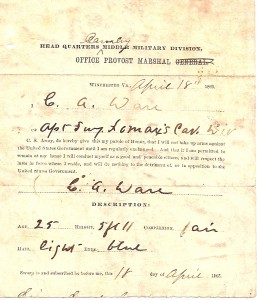 Cavalry
HEAD QUARTERS MIDDLE MILITARY DIVISION,
OFFICE PROVOST MARSHAL GENERAL
WINCHESTER VA. April 18" 1865.
I, C. A. Ware
Lomax's Cav. Div
C. S. Army, do hereby give this my parole of Honor, that I will not take up arms against
the United States Government until I am regularly exchanged. And that if I am permitted to
remain at my home I will conduct myself as a good and peaceable citizen, and will respect the
laws in force where I reside, and will do nothing to the detriment of, or in opposition to the
United States Government.
C. A. Ware
DESCRIPTION:
AGE, 25 HEIGHT, 5 ft 11 COMPLEXION, fair
HAIR, light EYES, blue
Sworn to and subscribed to before me, this 18 day of April 1865.